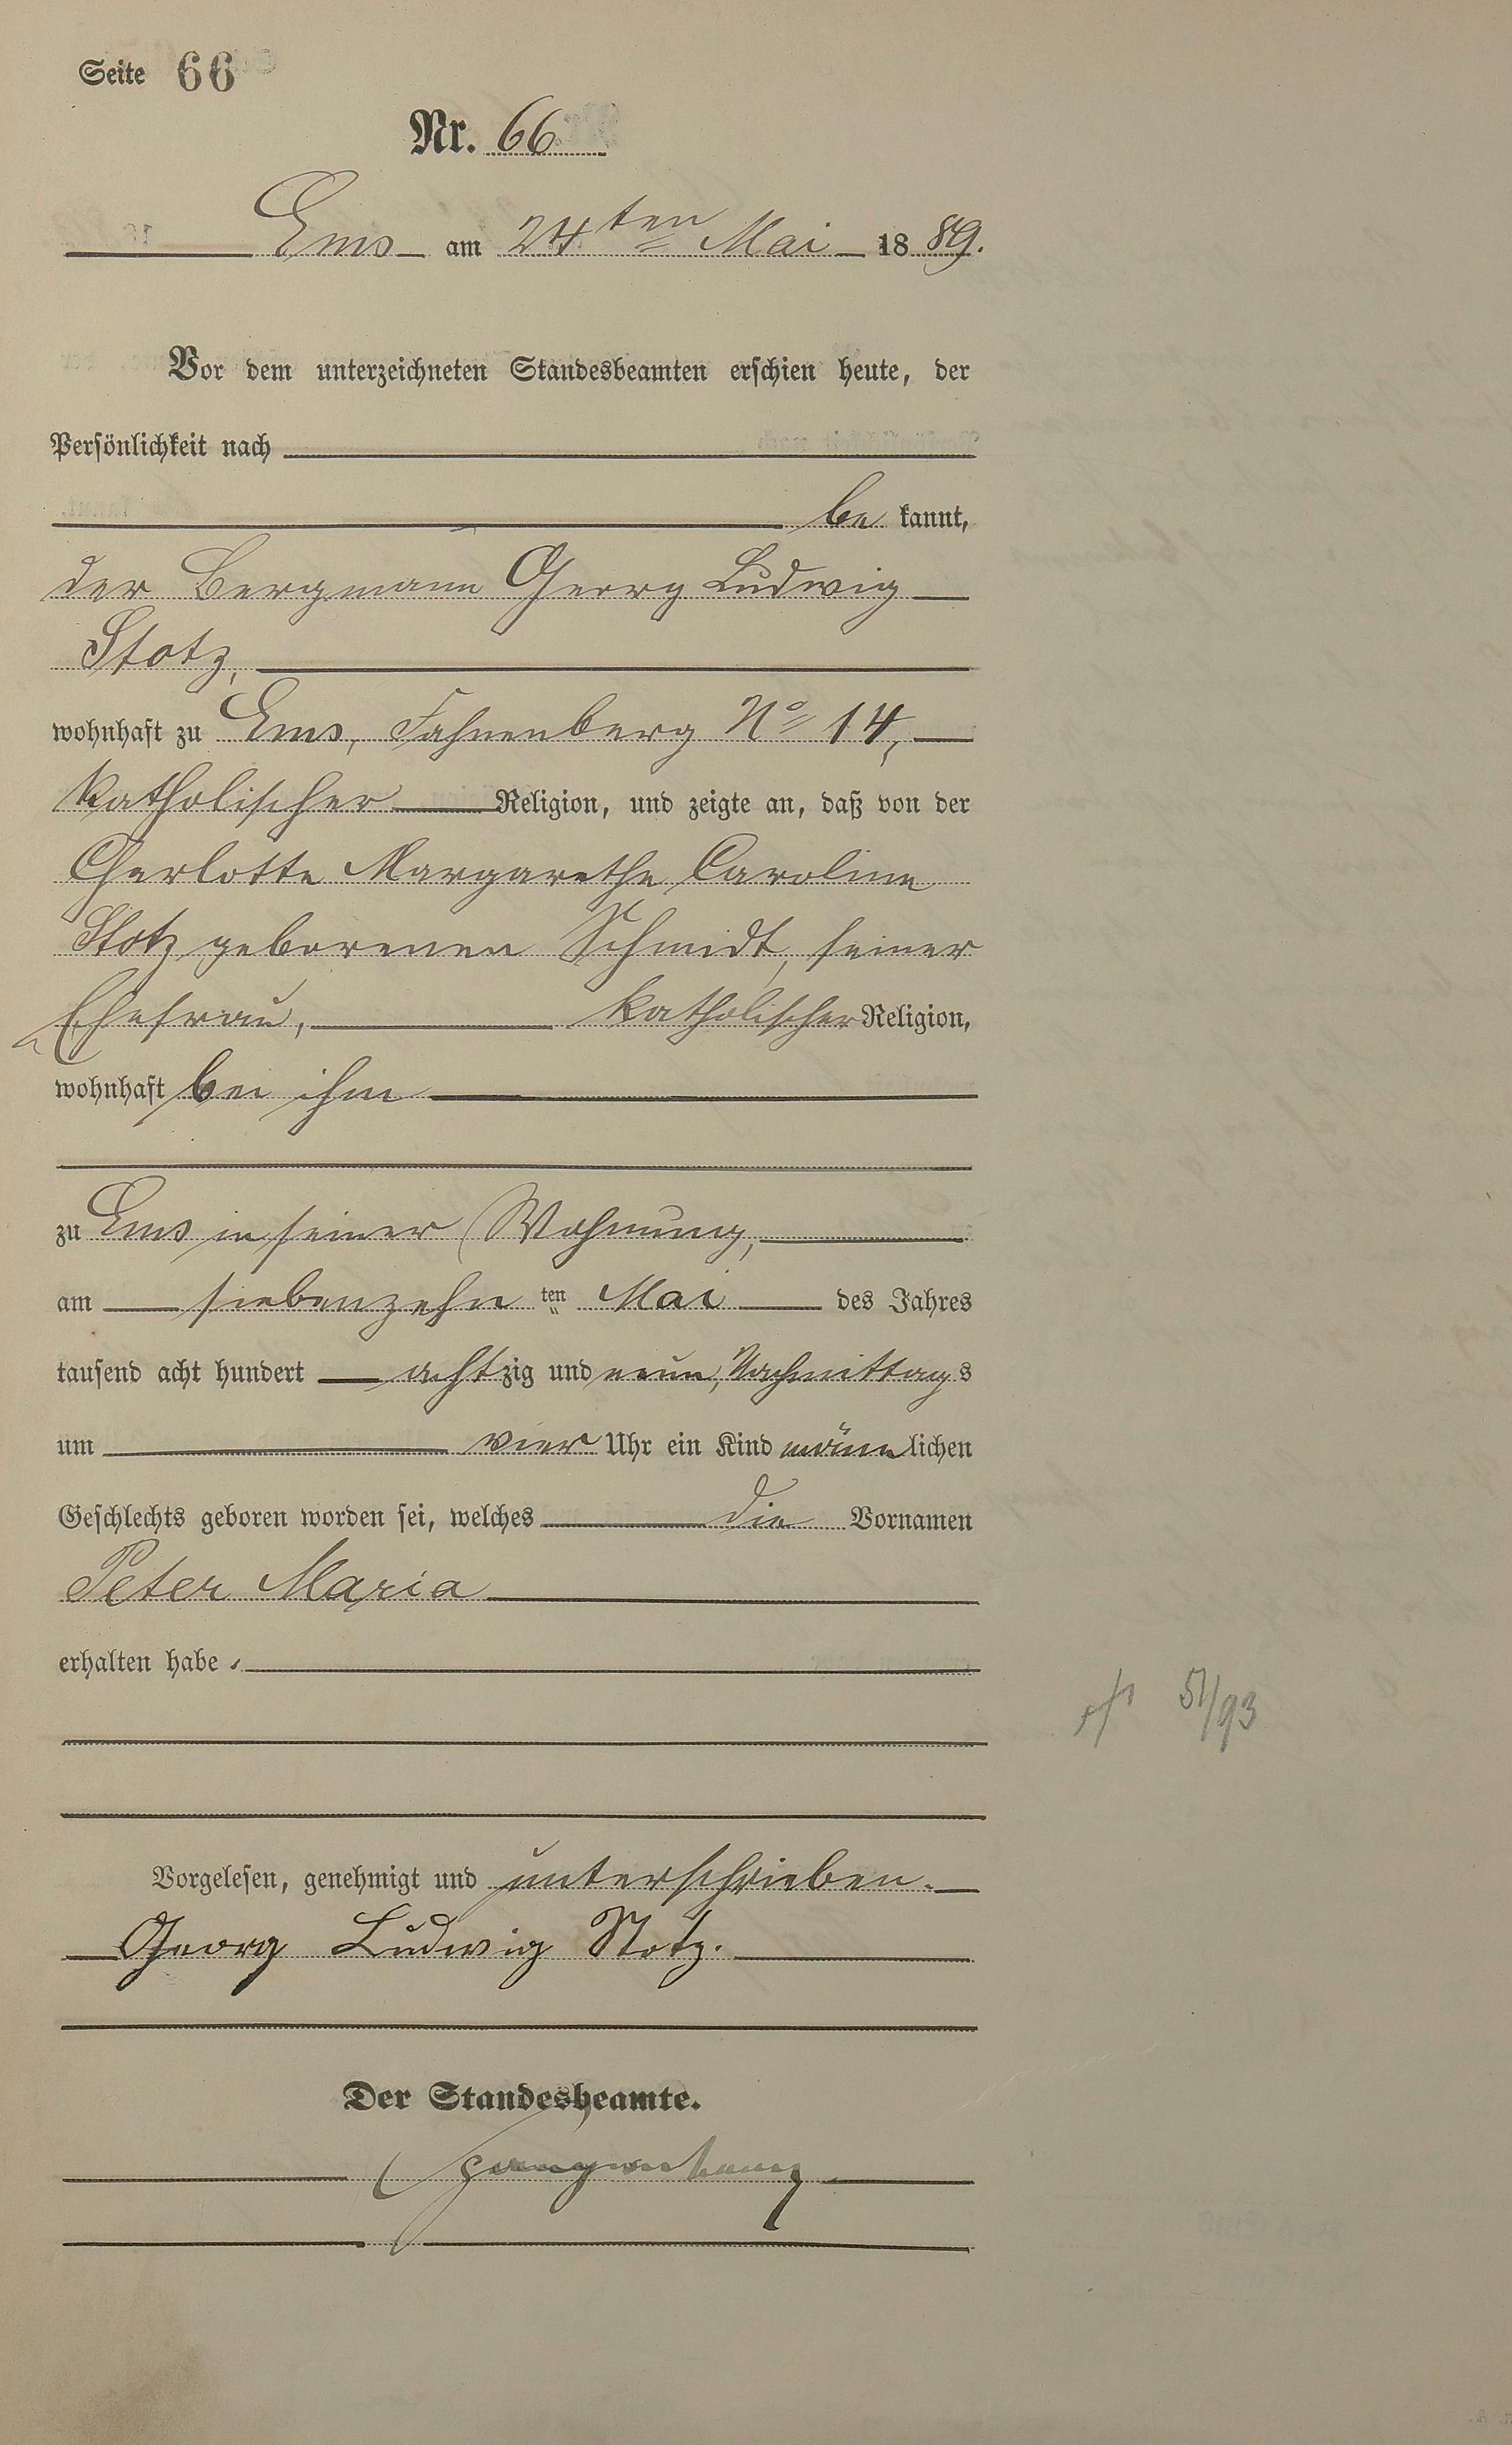 Seite 66
Nr. 66
Ems am 24ten Mai 1889.
Vor dem unterzeichneten Standesbeamten erschien heute, der
Persönlichkeit nach
be kannt,
der Bergmann Georg Ludwig
Stotz,
wohnhaft zu Ems, Fahnenberg No 14,
katholischer Religion, und zeigte an, daß von der
Charlotte Margarethe Caroline
Stotz geborenen Schmidt, seiner
Ehefrau, katholischer Religion,
wohnhaft bei ihm
zu Ems in seiner Wohnung,
am siebenzehn ten Mai des Jahres
tausend acht hundert achtzig und neun, Nachmittags
um vier Uhr ein Kind männlichen
Geschlechts geboren worden sei, welches die Vornamen
Peter Maria
erhalten habe.
51/93
Vorgelesen, genehmigt und unterschrieben.
Georg Ludwig Stotz.
Der Standesbeamte.